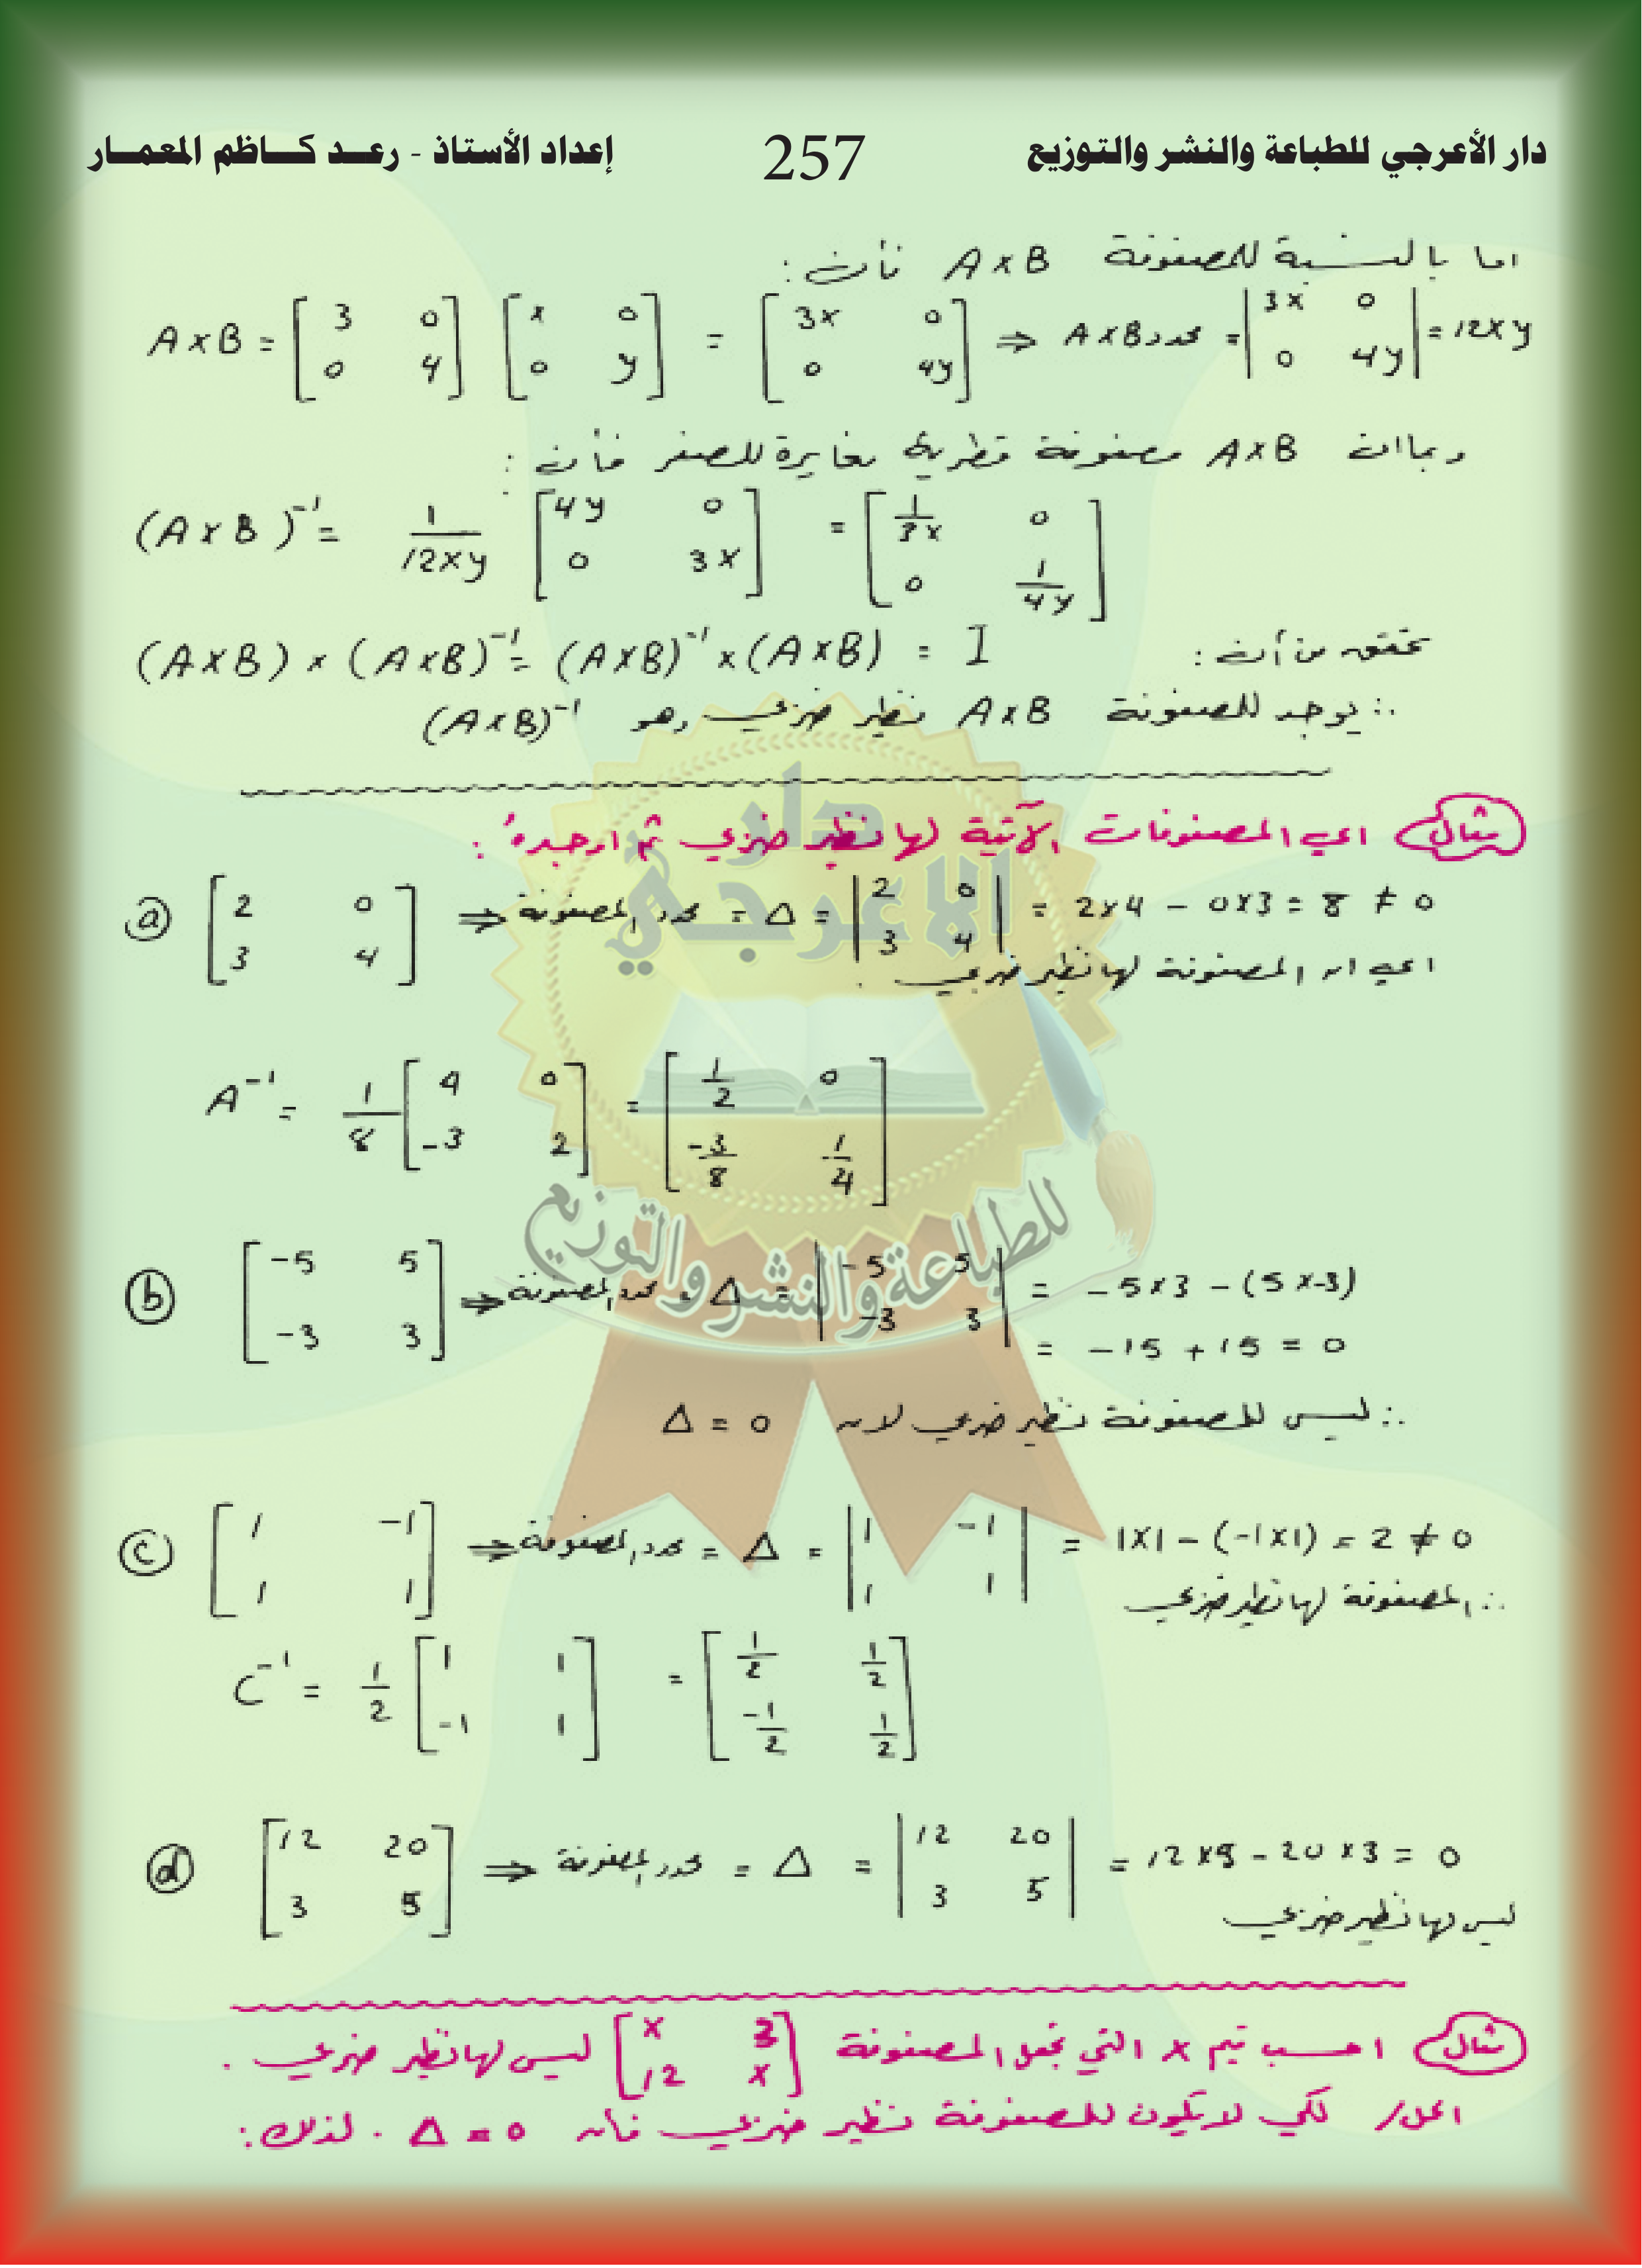 دار الأعرجي للطباعة والنشر والتوزيع 257 إعداد الأستاذ - رعد كاظم المعمار
اما بالنسبة للمصفوفة A×B فأن :
A×B = [3 0; 0 4] [x 0; 0 y] = [3x 0; 0 4y] ⇒ محدد A×B = |3x 0; 0 4y| = 12xy
وبما ان A×B مصفوفة قطرية مغايرة للصفر فأن :
(A×B)⁻¹ = 1/12xy [4y 0; 0 3x] = [1/3x 0; 0 1/4y]
تحقق من أن : (A×B) × (A×B)⁻¹ = (A×B)⁻¹ × (A×B) = I
∴ يوجد للمصفوفة A×B نظير ضربي وهو (A×B)⁻¹
مثال اي المصفوفات الآتية لها نظير ضربي ثم اوجده :
ⓐ [2 0; 3 4] ⇒ محدد المصفوفة = Δ = |2 0; 3 4| = 2×4 - 0×3 = 8 ≠ 0
اي ان المصفوفة لها نظير ضربي .
A⁻¹ = 1/8 [4 0; -3 2] = [1/2 0; -3/8 1/4]
ⓑ [-5 5; -3 3] ⇒ محدد المصفوفة = Δ = |-5 5; -3 3| = -5×3 - (5×-3)
= -15 + 15 = 0
∴ ليس للمصفوفة نظير ضربي لان Δ = 0
ⓒ [1 -1; 1 1] ⇒ محدد المصفوفة = Δ = |1 -1; 1 1| = 1×1 - (-1×1) = 2 ≠ 0
∴ المصفوفة لها نظير ضربي
C⁻¹ = 1/2 [1 1; -1 1] = [1/2 1/2; -1/2 1/2]
ⓓ [12 20; 3 5] ⇒ محدد المصفوفة = Δ = |12 20; 3 5| = 12×5 - 20×3 = 0
ليس لها نظير ضربي
مثال احسب قيم x التي تجعل المصفوفة [x 3; 12 x] ليس لها نظير ضربي .
الحل/ لكي لا يكون للمصفوفة نظير ضربي فأن Δ = 0 . لذلك :
دار
الاعرجي
للطباعة والنشر والتوزيع